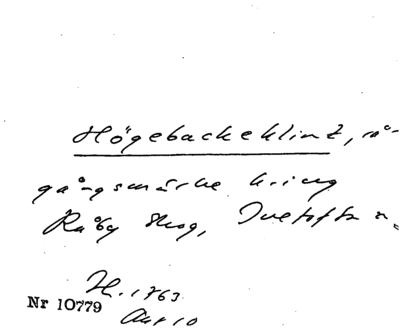 Högebackeklint, rå-
gångsmärke kring
Råby skog, Tvetofta s.
H. 1763
Nr 10779
Akt 10